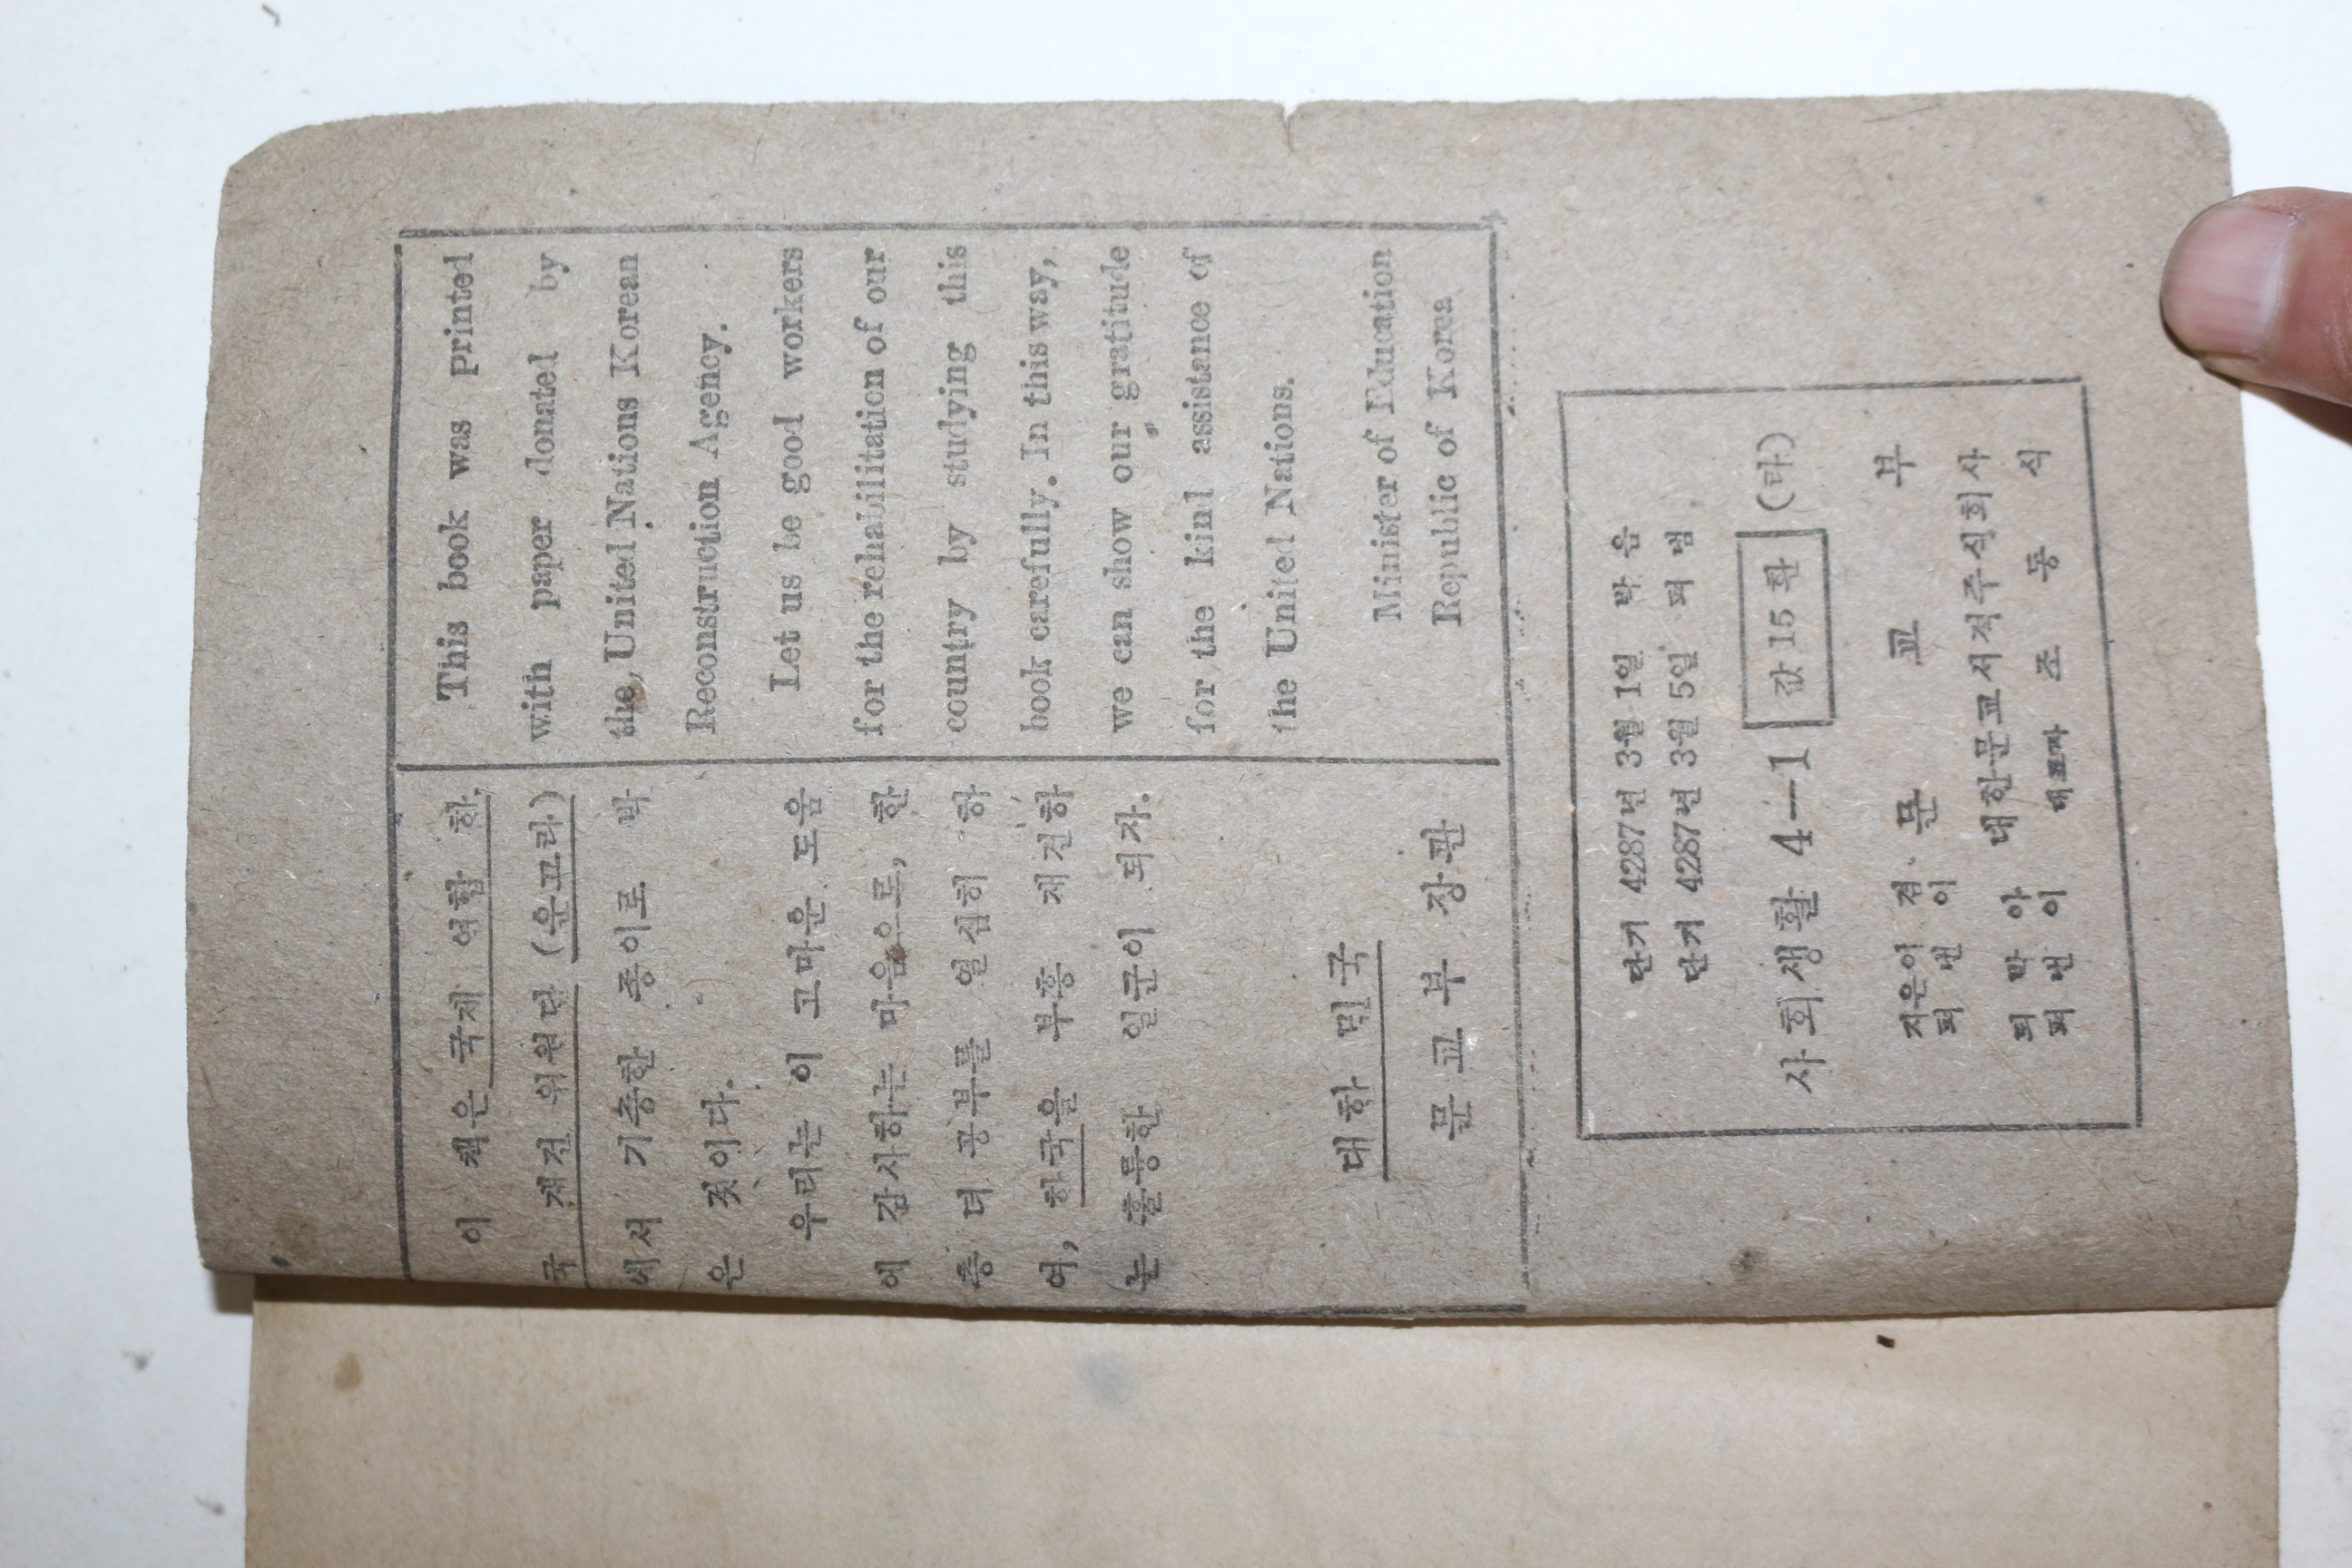 이 책은 국제 연합 한
국 재건 위원단 (운끄라)
에서 기증한 종이로 박
은 것이다.
우리는 이 고마운 도움
에 감사하는 마음으로, 한
층 더 공부를 열심히 하
여, 한국을 부흥 재건하
는 훌륭한 일군이 되자.
대한 민국
문교부 장관
This book was printed
with paper donated by
the United Nations Korean
Reconstruction Agency.
Let us be good workers
for the rehabilitation of our
country by studying this
book carefully. In this way,
we can show our gratitude
for the kind assistance of
the United Nations.
Minister of Education
Republic of Korea
단기 4287년 3월 1일 박음
단기 4287년 3월 5일 펴냄
사회생활 4—1 값 15 환 (라)
지은이 겸
펴낸이 문교부
박아
펴낸이 대한문교서적주식회사
대표자 조동식